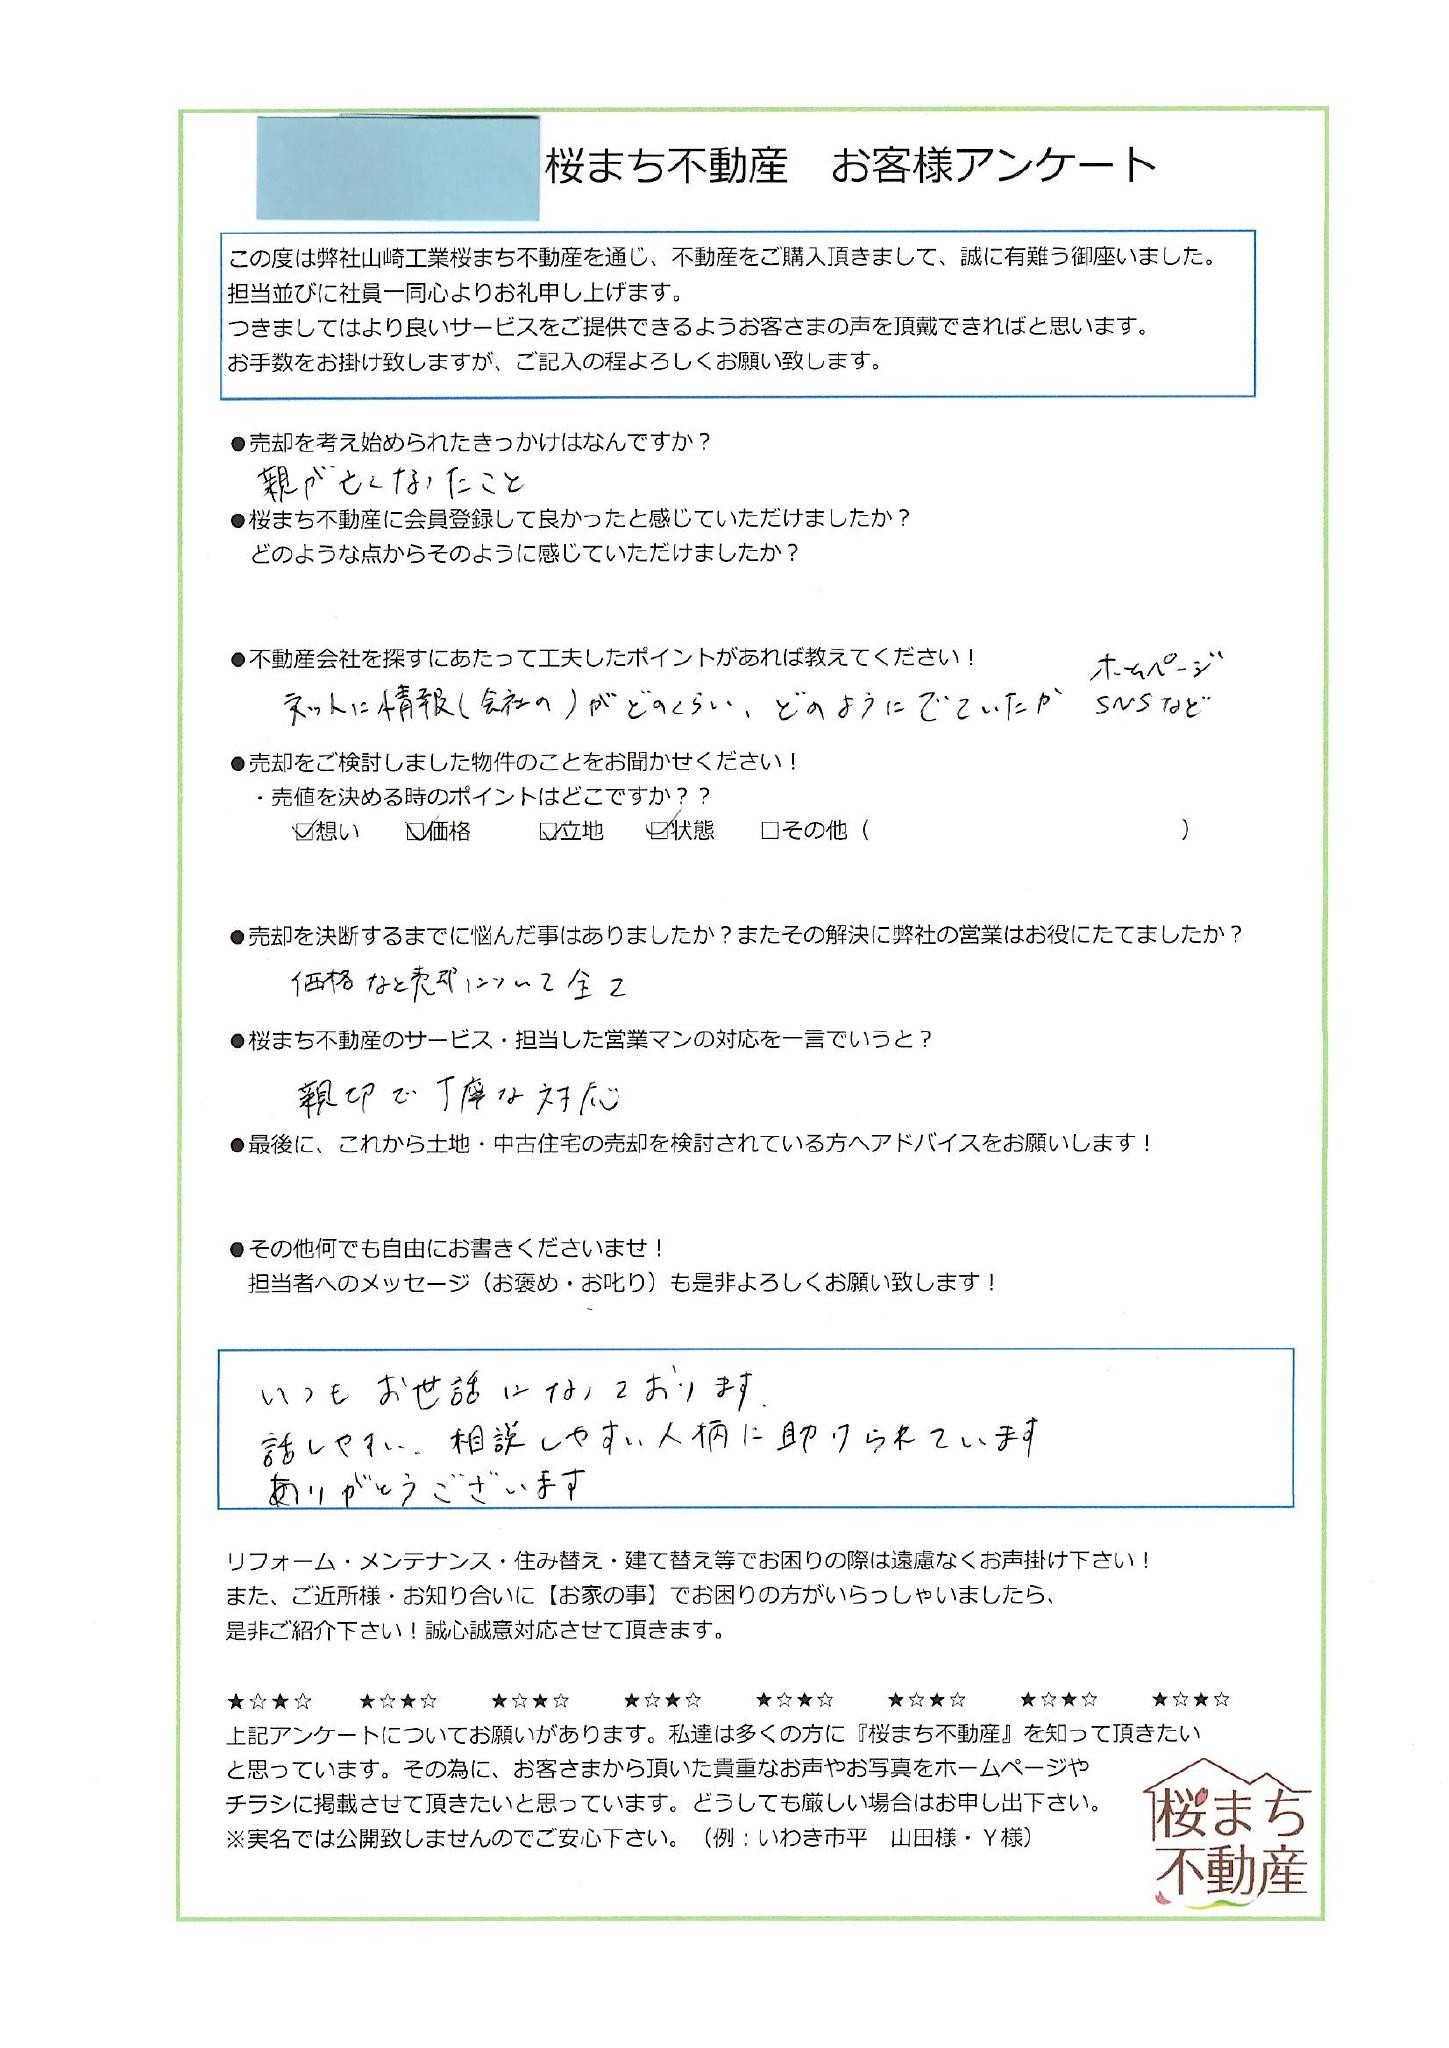 桜まち不動産　お客様アンケート
この度は弊社山崎工業桜まち不動産を通じ、不動産をご購入頂きまして、誠に有難う御座いました。
担当並びに社員一同心よりお礼申し上げます。
つきましてはより良いサービスをご提供できるようお客さまの声を頂戴できればと思います。
お手数をお掛け致しますが、ご記入の程よろしくお願い致します。
●売却を考え始められたきっかけはなんですか？
親が亡くなったこと
●桜まち不動産に会員登録して良かったと感じていただけましたか？
どのような点からそのように感じていただけましたか？
●不動産会社を探すにあたって工夫したポイントがあれば教えてください！
ネットに情報(会社の)がどのくらい、どのようにでていたか
ホームページ
SNSなど
●売却をご検討しました物件のことをお聞かせください！
・売値を決める時のポイントはどこですか？？
☑想い　☑価格　☑立地　☑状態　□その他（　　　　　）
●売却を決断するまでに悩んだ事はありましたか？またその解決に弊社の営業はお役にたてましたか？
価格など売却について全て
●桜まち不動産のサービス・担当した営業マンの対応を一言でいうと？
親切で丁寧な対応
●最後に、これから土地・中古住宅の売却を検討されている方へアドバイスをお願いします！
●その他何でも自由にお書きくださいませ！
担当者へのメッセージ（お褒め・お叱り）も是非よろしくお願い致します！
いつもお世話になっております。
話しやすい、相談しやすい人柄に助けられています
ありがとうございます
リフォーム・メンテナンス・住み替え・建て替え等でお困りの際は遠慮なくお声掛け下さい！
また、ご近所様・お知り合いに【お家の事】でお困りの方がいらっしゃいましたら、
是非ご紹介下さい！誠心誠意対応させて頂きます。
★☆★☆　★☆★☆　★☆★☆　★☆★☆　★☆★☆　★☆★☆　★☆★☆　★☆★☆
上記アンケートについてお願いがあります。私達は多くの方に『桜まち不動産』を知って頂きたい
と思っています。その為に、お客さまから頂いた貴重なお声やお写真をホームページや
チラシに掲載させて頂きたいと思っています。どうしても厳しい場合はお申し出下さい。
※実名では公開致しませんのでご安心下さい。（例：いわき市平　山田様・Ｙ様）
桜まち
不動産